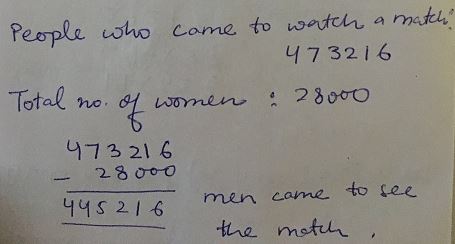 People who came to watch a match:
473216
Total no. of women : 28000
473216
- 28000
445216 men came to see
the match.